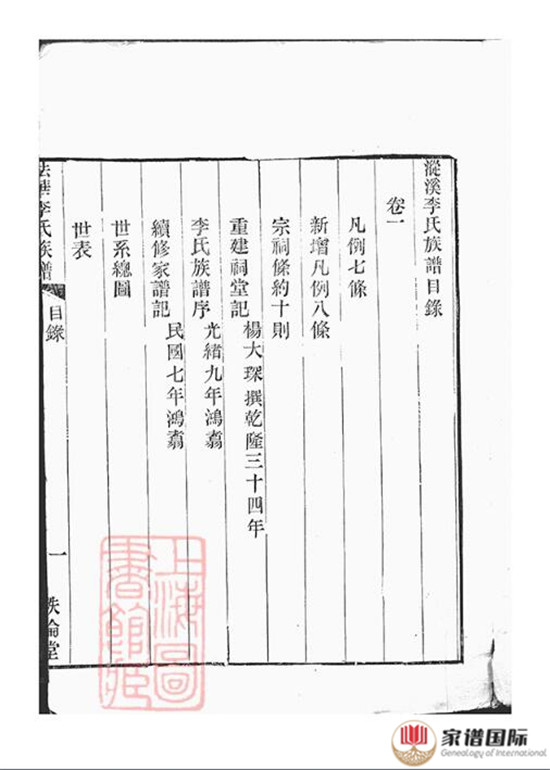 漎溪李氏族譜目錄
卷一
凡例七條
新增凡例八條
宗祠條約十則
重建祠堂記 楊大琛撰乾隆三十四年
李氏族譜序 光緒九年鴻翥
續修家譜記 民國七年鴻翥
世系總圖
世表
法華李氏族譜 目錄 一
上海圖書館藏
家谱国际
Genealogy of International